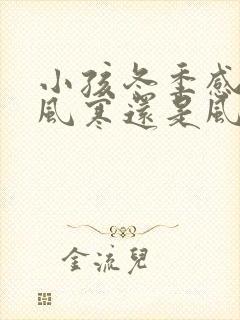 小孩冬季感
風寒還是風
金流兒